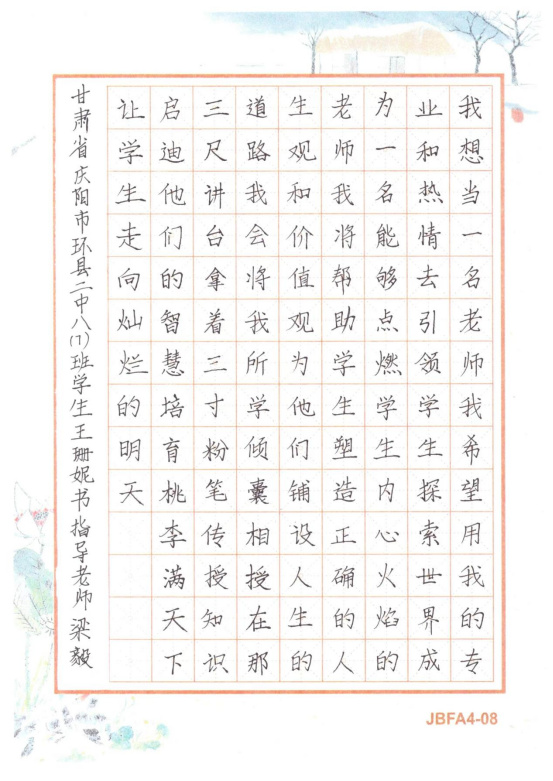 我想当一名老师我希望用我的专
业和热情去引领学生探索世界成
为一名能够点燃学生内心火焰的
老师我将帮助学生塑造正确的人
生观和价值观为他们铺设人生的
道路我会将我所学倾囊相授在那
三尺讲台拿着三寸粉笔传授知识
启迪他们的智慧培育桃李满天下
让学生走向灿烂的明天
甘肃省庆阳市环县二中八(7)班学生王珊妮书指导老师梁毅
JBFA4-08